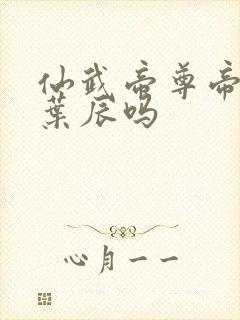 仙武帝尊帝
葉辰吗
心月一一